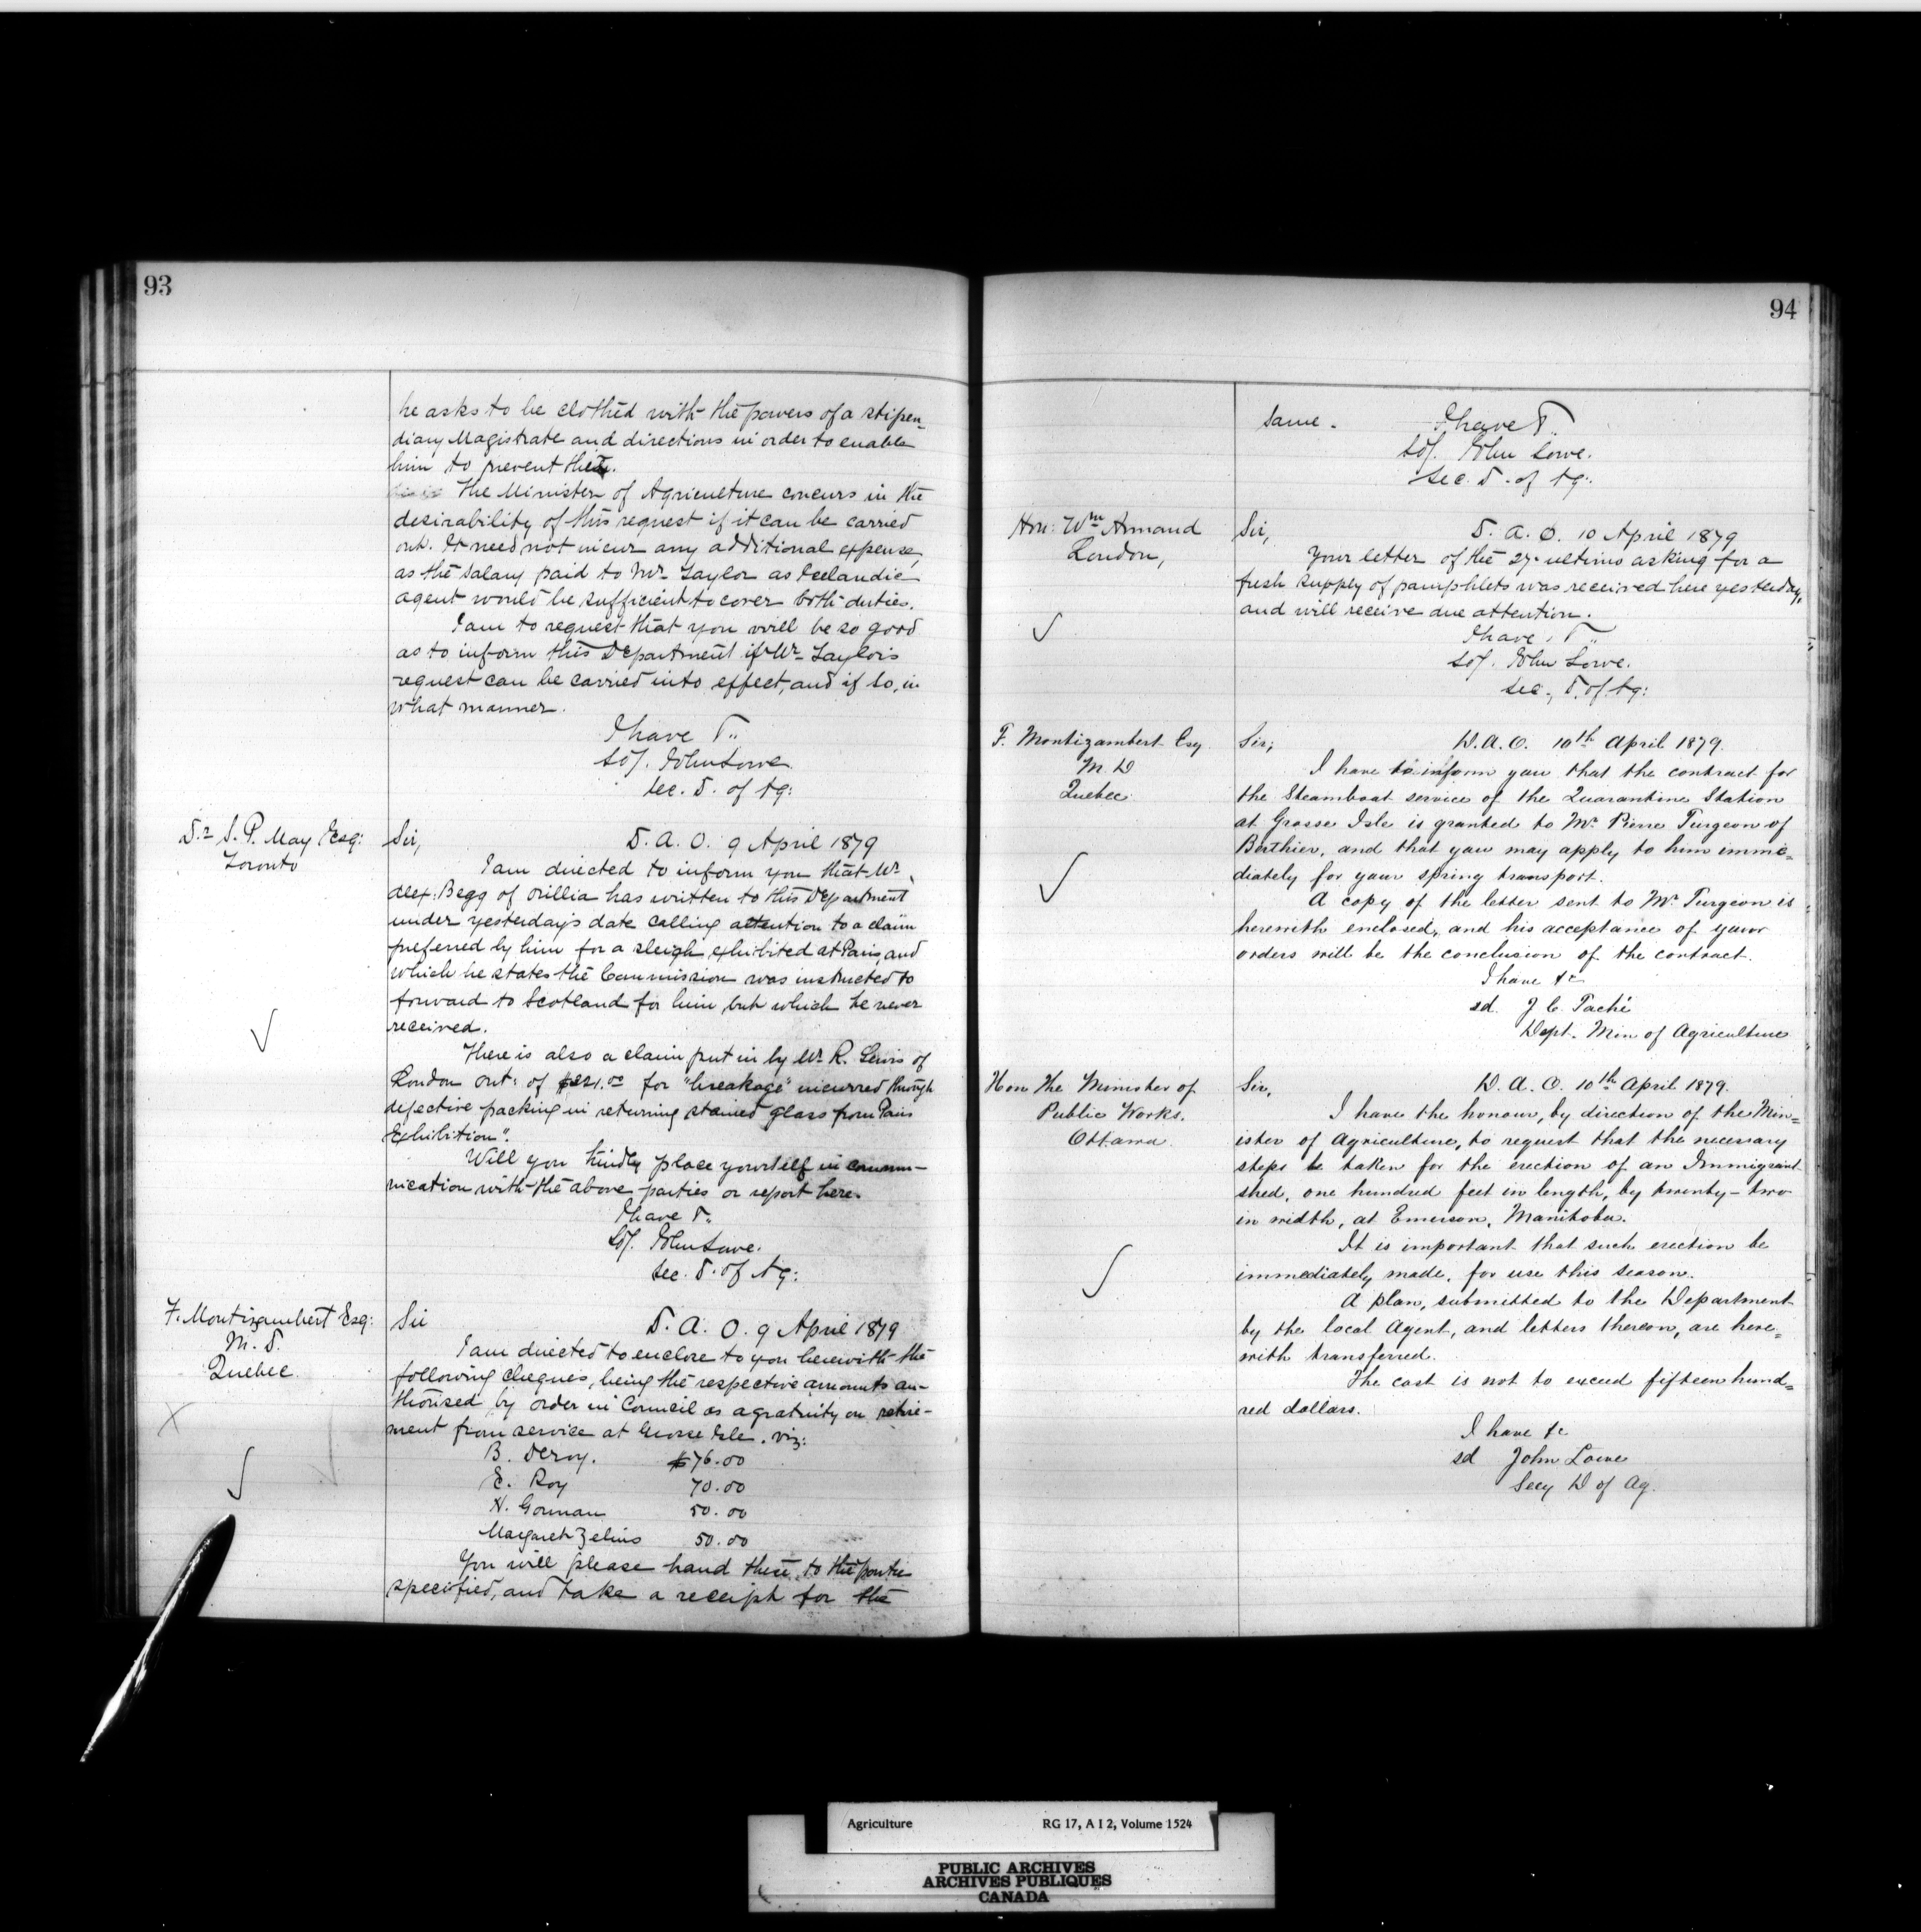 93
he asks to be clothed with the powers of a stipen-
diary Magistrate and directions in order to enable
him to prevent them.
The Minister of Agriculture concurs in the
desirability of this request if it can be carried
out. It need not incur any additional expense,
as the salary paid to Mr. Taylor as Icelandic
agent would be sufficient to cover both duties.
I am to request that you will be so good
as to inform this Department if Mr. Taylor's
request can be carried into effect, and if so, in
what manner.
I have &..
sd/. John Lowe.
Sec. D. of Ag:
Dr. S. P. May Esq:
Toronto
Sir,
D. A. O. 9 April 1879
I am directed to inform you that Mr.
Alex: Begg of Orillia has written to this Department
under yesterday's date calling attention to a claim
preferred by him for a sleigh exhibited at Paris, and
which he states the Commission was instructed to
forward to Scotland for him but which he never
received.
There is also a claim put in by Mr. R. Lewis of
London Ont: of for "breakage" incurred through
defective packing in returning stained glass from Paris
Exhibition".
Will you kindly place yourself in commu-
nication with the above parties or report here.
I have &..
sd/. John Lowe.
Sec. D. of Ag:
F. Montizambert Esq:
M. D.
Quebec.
Sir
D. A. O. 9 April 1879
I am directed to enclose to you herewith the
following cheques, being the respective amounts au-
thorised by order in Council as a gratuity on retire-
ment from service at Grosse Isle. viz:
B. Deroy. $76.00
E. Roy 70.00
N. Gorman 50.00
Margaret 50.00
You will please hand these to the parties
specified, and take a receipt for the
94
same.
I have &..
sd/. John Lowe.
Sec. D. of Ag:
Hon: Wm Armand
London,
Sir,
D. A. O. 10 April 1879
Your letter of the 27. ultimo asking for a
fresh supply of pamphlets was received here yesterday,
and will receive due attention.
I have, &..
sd/. John Lowe.
Sec., D. of Ag:
F. Montizambert Esq
M. D
Quebec.
Sir;
D. A. O. 10th April 1879.
I have to inform you that the contract for
the Steamboat service of the Quarantine Station
at Grosse Isle is granted to Mr. Pierre Turgeon of
Berthier, and that you may apply to him imme=
diately for your spring transport.
A copy of the letter sent to Mr. Turgeon is
herewith enclosed, and his acceptance of your
orders will be the conclusion of the contract.
I have &c
sd. J C. Taché
Dept. Min of Agriculture
Hon The Minister of
Public Works.
Ottawa.
Sir,
D. A. O. 10th April 1879.
I have the honour, by direction of the Min=
ister of Agriculture, to request that the necessary
steps be taken for the erection of an Immigrant
shed, one hundred feet in length, by twenty-two
in width, at Emerson, Manitoba.
It is important that such erection be
immediately made, for use this season.
A plan, submitted to the Department
by the local Agent, and letters thereon, are here=
with transferred.
The cost is not to exceed fifteen hund=
red dollars.
I have &c
sd John Lowe
Secy D of Ag.
Agriculture RG 17, A I 2, Volume 1524
PUBLIC ARCHIVES
ARCHIVES PUBLIQUES
CANADA